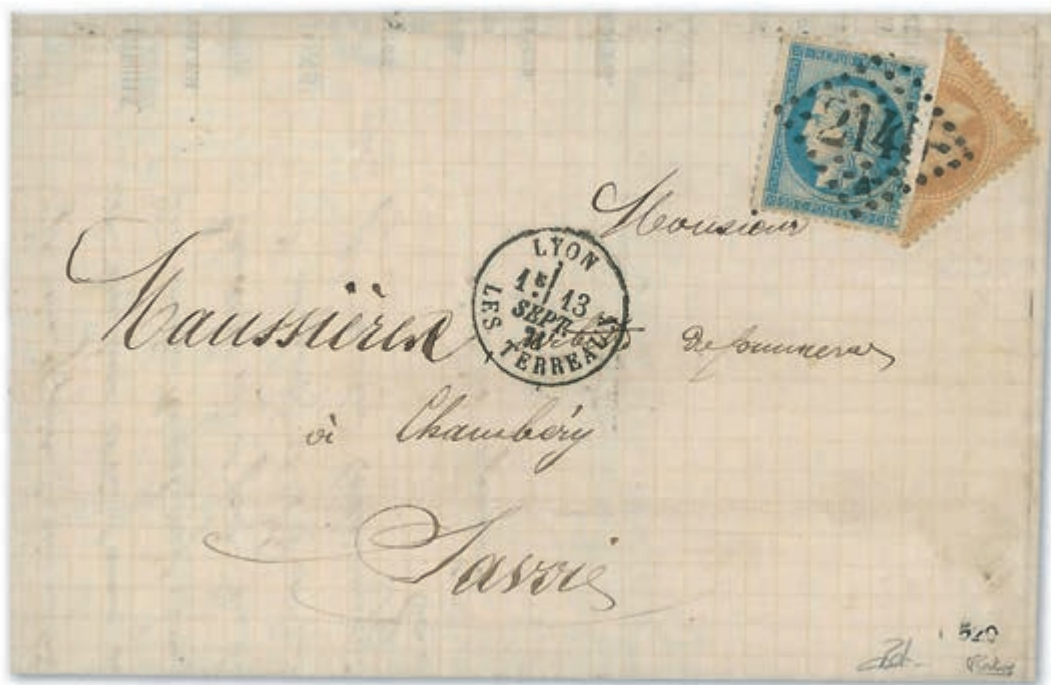 214
Monsieur
LYON
1E 13
SEPT.
71
LES TERREAUX
Maussière
à Chambéry
Savoie
520